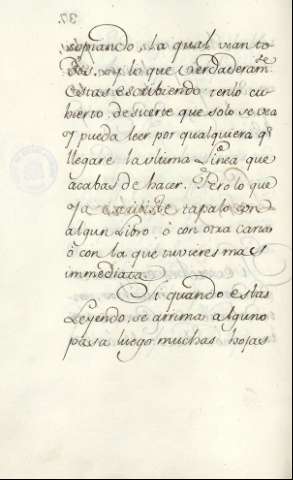 37.
copiando, la qual vean to
dos. y lo que verdaderamte
estas escribiendo tenlo cu-
bierto de suerte que solo se vea
y pueda leer por qualquiera q̃
llegare la ultima Linea que
acabas de hacer. Pero lo que
ya escribiste tapalo con
algun Libro ó con otra carta
ó con la que tuvieres mas
immediata.
Si quando estas
Leyendo, se arrima alguno
pasa luego muchas hojas